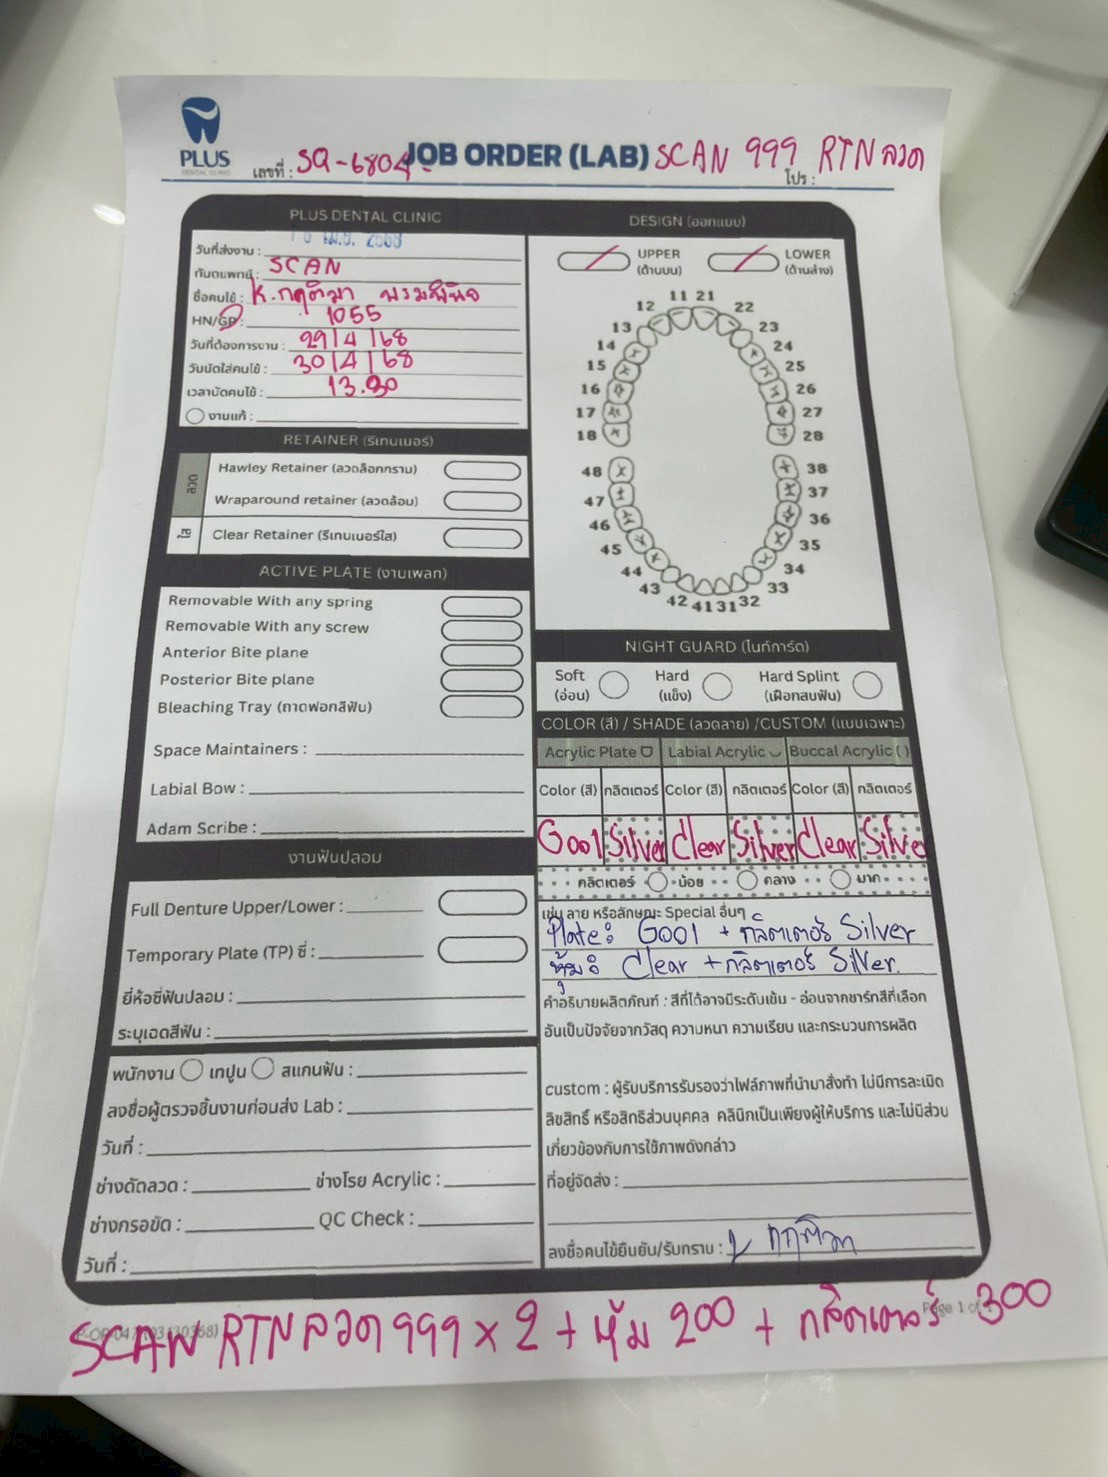 PLUS
DENTAL CLINIC
เลขที่ : SQ-6804- JOB ORDER (LAB) SCAN 999 RTN ลวด
โปร :
PLUS DENTAL CLINIC
วันที่ส่งงาน : เม.ย. 2568
ทันตแพทย์ : SCAN
ชื่อคนไข้ : K.กฤติมา
HN/GP : 1055
วันที่ต้องการงาน : 29/4/68
วันนัดใส่คนไข้ : 30/4/68
เวลานัดคนไข้ : 13.30
งานแก้ :
RETAINER (รีเทนเนอร์)
ลวด
Hawley Retainer (ลวดล็อกกราม)
Wraparound retainer (ลวดล้อม)
ใส
Clear Retainer (รีเทนเนอร์ใส)
ACTIVE PLATE (งานเพลท)
Removable With any spring
Removable With any screw
Anterior Bite plane
Posterior Bite plane
Bleaching Tray (ถาดฟอกสีฟัน)
Space Maintainers :
Labial Bow :
Adam Scribe :
งานฟันปลอม
Full Denture Upper/Lower :
Temporary Plate (TP) ซี่ :
ยี่ห้อซี่ฟันปลอม :
ระบุเฉดสีฟัน :
พนักงาน เทปูน สแกนฟัน :
ลงชื่อผู้ตรวจชิ้นงานก่อนส่ง Lab :
วันที่ :
ช่างดัดลวด : ช่างโรย Acrylic :
ช่างกรอขัด : QC Check :
วันที่ :
DESIGN (ออกแบบ)
UPPER (ด้านบน)
LOWER (ด้านล่าง)
11 21
12 22
13 23
14 24
15 25
16 26
17 27
18 28
48 38
47 37
46 36
45 35
44 34
43 33
42 41 31 32
NIGHT GUARD (ไนท์การ์ด)
Soft (อ่อน)
Hard (แข็ง)
Hard Splint (เฝือกสบฟัน)
COLOR (สี) / SHADE (ลวดลาย) /CUSTOM (แบบเฉพาะ)
Acrylic Plate Labial Acrylic Buccal Acrylic ( )
Color (สี) กลิตเตอร์ Color (สี) กลิตเตอร์ Color (สี) กลิตเตอร์
G001 Silver Clear Silver Clear Silve
กลิตเตอร์ น้อย กลาง มาก
เช่น ลาย หรือลักษณะ Special อื่นๆ
Plate: G001 + กลิตเตอร์ Silver
หุ้ม: Clear + กลิตเตอร์ Silver.
คำอธิบายผลิตภัณฑ์ : สีที่ได้อาจมีระดับเข้ม - อ่อนจากชาร์ทสีที่เลือก
อันเป็นปัจจัยจากวัสดุ ความหนา ความเรียบ และกระบวนการผลิต
custom : ผู้รับบริการรับรองว่าไฟล์ภาพที่นำมาสั่งทำ ไม่มีการละเมิด
ลิขสิทธิ์ หรือสิทธิส่วนบุคคล คลินิกเป็นเพียงผู้ให้บริการ และไม่มีส่วน
เกี่ยวข้องกับการใช้ภาพดังกล่าว
ที่อยู่จัดส่ง :
ลงชื่อคนไข้ยืนยัน/รับทราบ : กฤติมา
Page 1 of
SCAN RTN ลวด 999 x 2 + หุ้ม 200 + กลิตเตอร์ 300